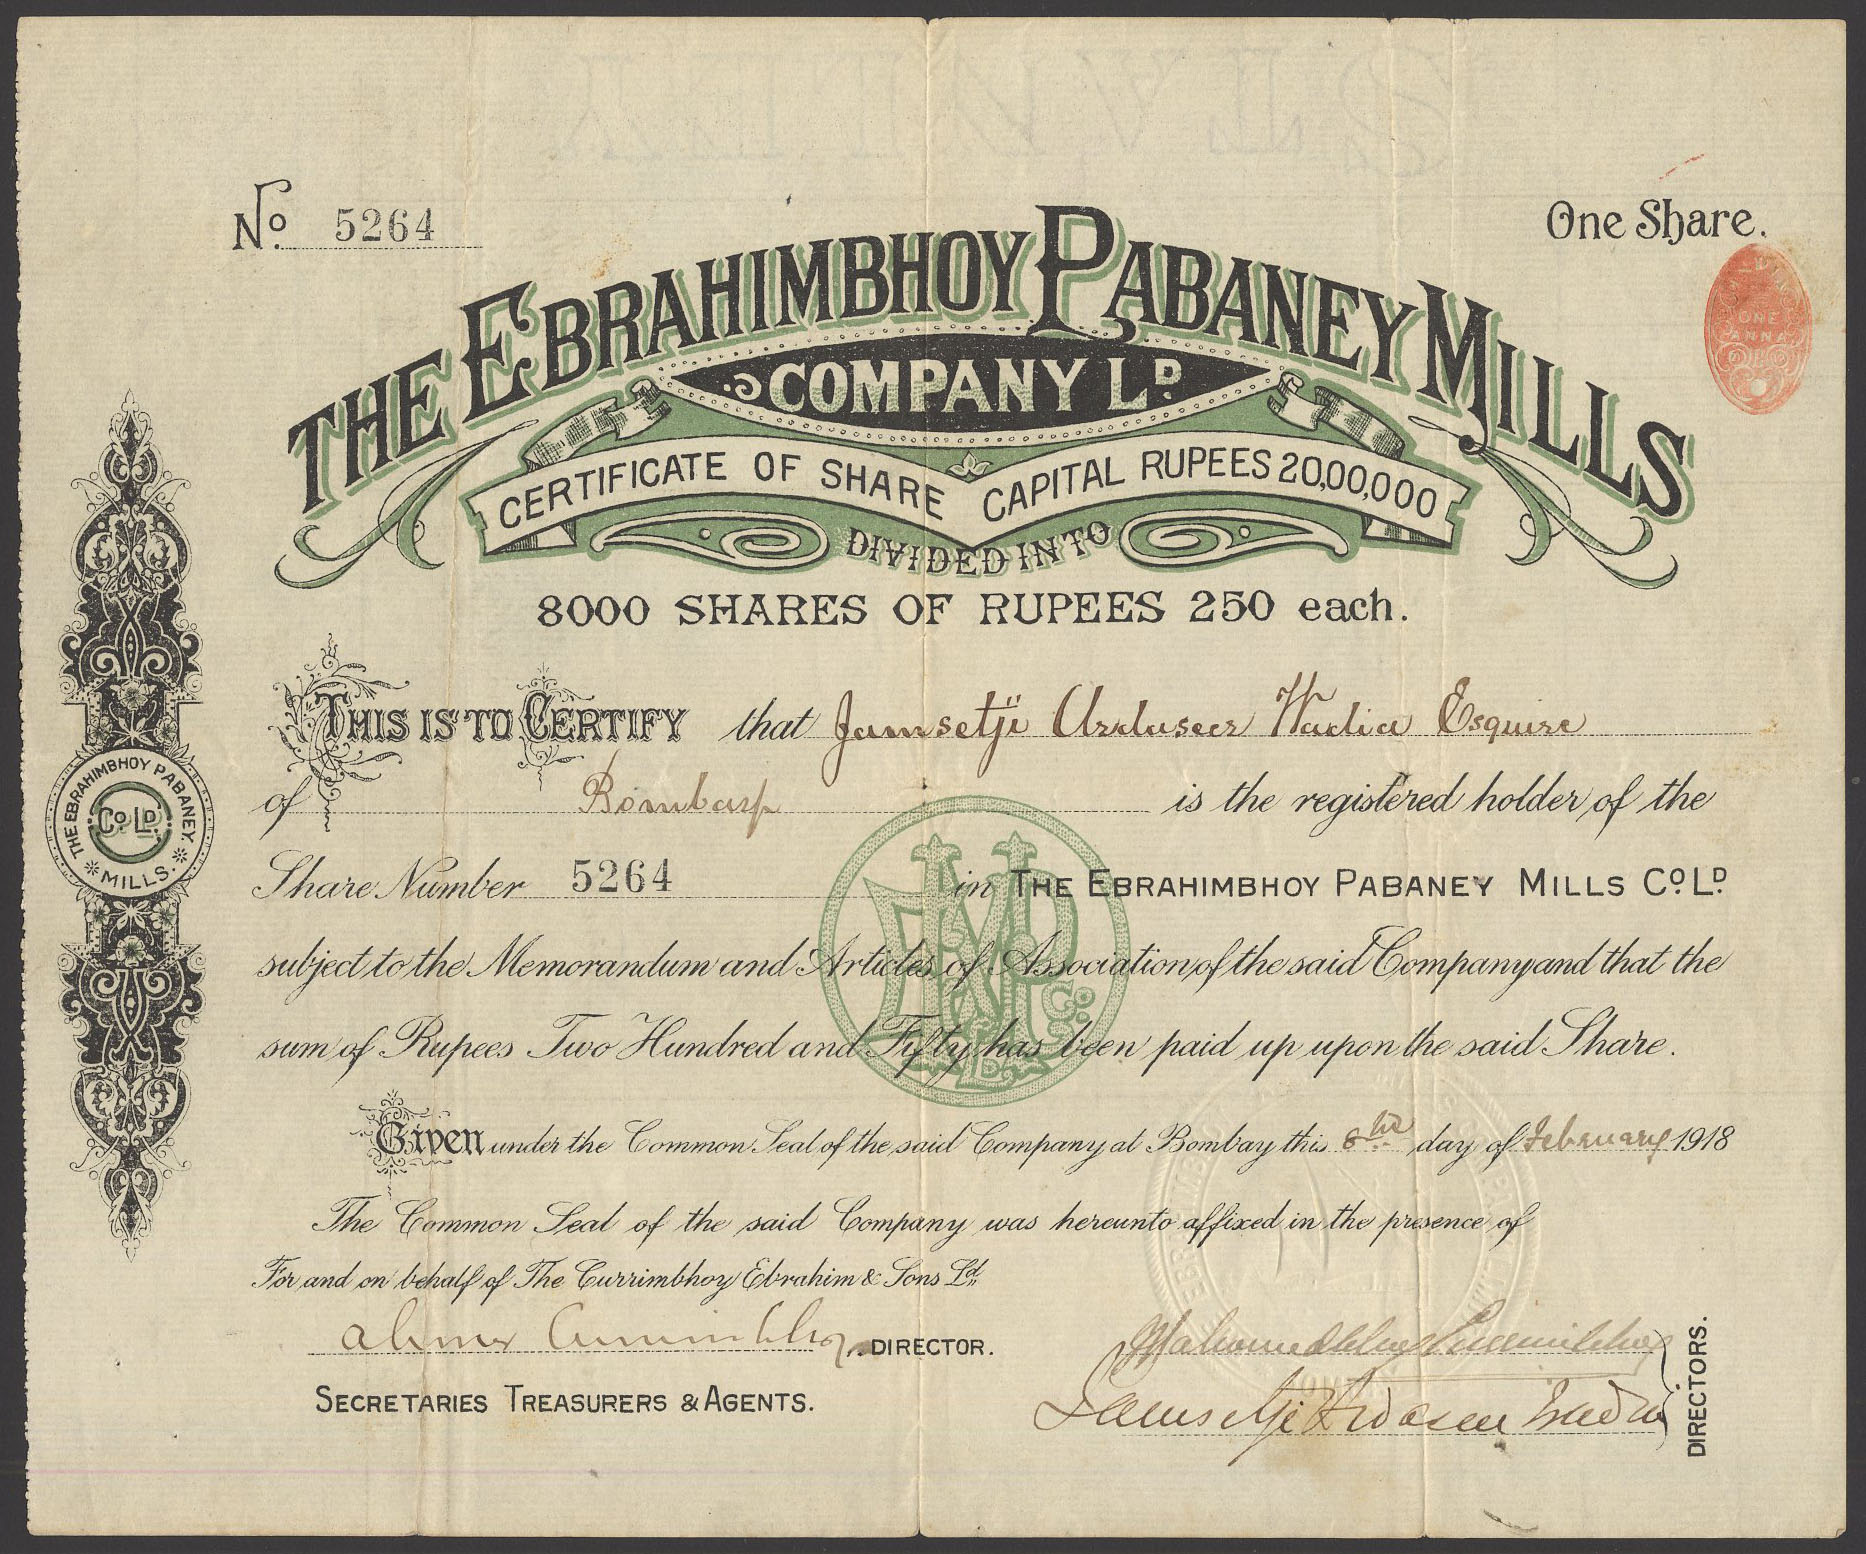 No. 5264
One Share.
THE EBRAHIMBHOY PABANEY MILLS
COMPANY LD.
ONE
ANNA
CERTIFICATE OF SHARE CAPITAL RUPEES 20,00,000
DIVIDED INTO
8000 SHARES OF RUPEES 250 each.
THIS IS TO CERTIFY that Jamsetji Arduseer Wadia Esquire
of Bombay is the registered holder of the
Share Number 5264 in THE EBRAHIMBHOY PABANEY MILLS Co. LD.
subject to the Memorandum and Articles of Association of the said Company and that the
sum of Rupees Two Hundred and Fifty has been paid up upon the said Share.
Given under the Common Seal of the said Company at Bombay this 8th day of February 1918
The Common Seal of the said Company was hereunto affixed in the presence of
For and on behalf of The Currimbhoy Ebrahim & Sons Ld.
DIRECTOR.
SECRETARIES TREASURERS & AGENTS.
Mahomedbhoy Currimbhoy
Jamsetji Ardaseer Wadia
DIRECTORS.
THE EBRAHIMBHOY PABANEY MILLS.
Co. LD.